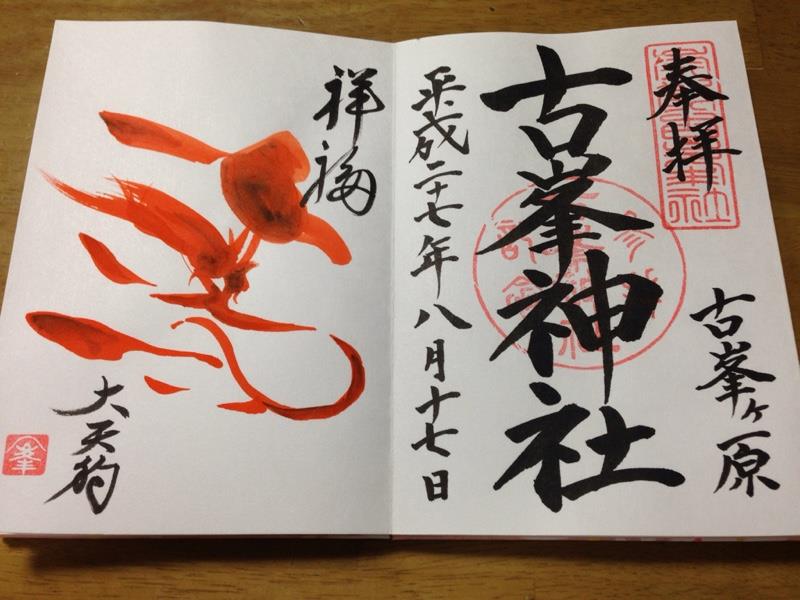 奉拝
古峯ヶ原
古峯神社
平成二十七年八月十七日
祥福
大天狗